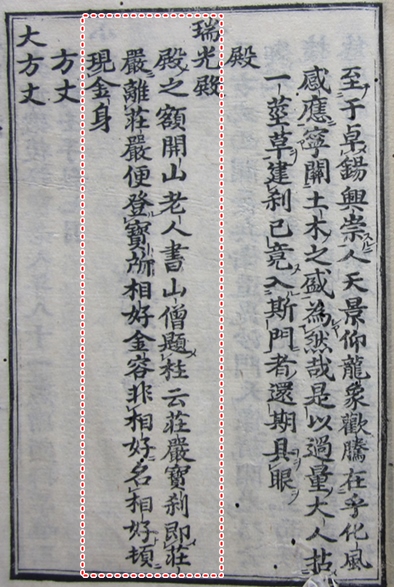 至于卓錫興崇人天景仰龍象歡騰在乎化風
感應寧關土木之盛為然哉是以過量大人拈
一莖草建刹已竟入斯門者還期具眼
殿
瑞光殿
殿之額開山老人書山僧題柱云莊嚴寶刹即莊
嚴離莊嚴便登寶所相好金容非相好名相好頓
現金身
方丈
大方丈